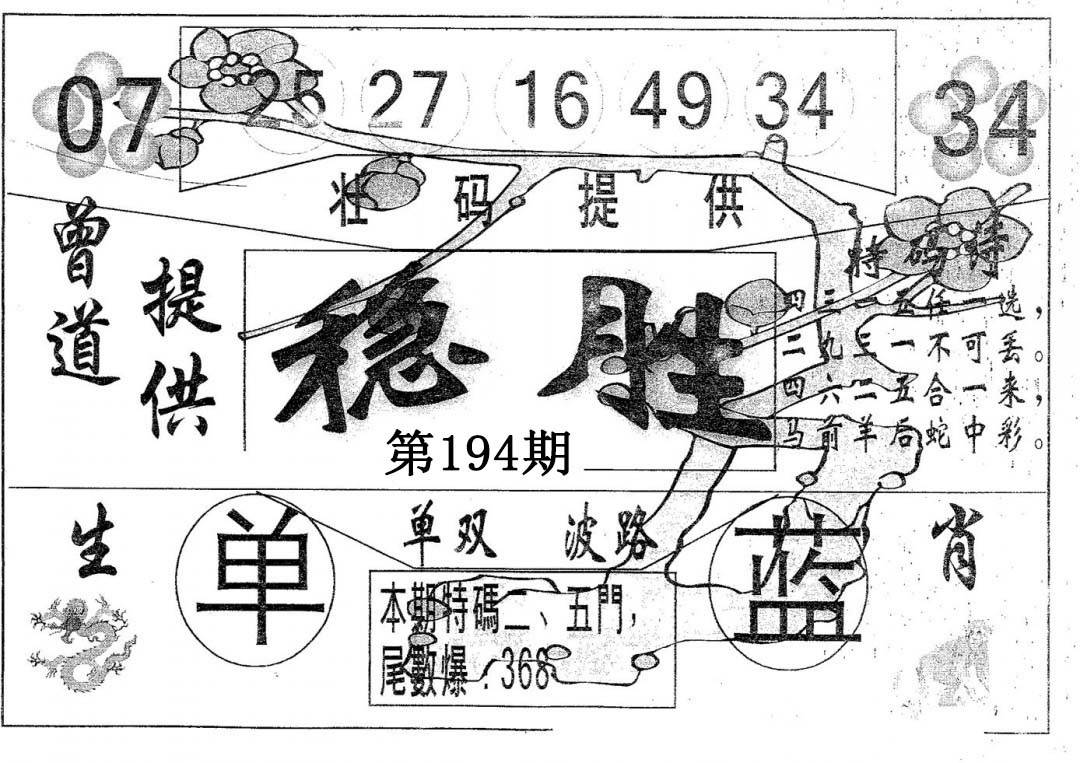 07 25 27 16 49 34 34
壮码提供
曾道
提供
稳胜
第194期
特码诗
四三一五任一选，
二九三一不可丢。
四六二五合一来，
马前羊后蛇中彩。
生 单 单双 波路 蓝 肖
本期特碼二、五門，
尾數爆：368